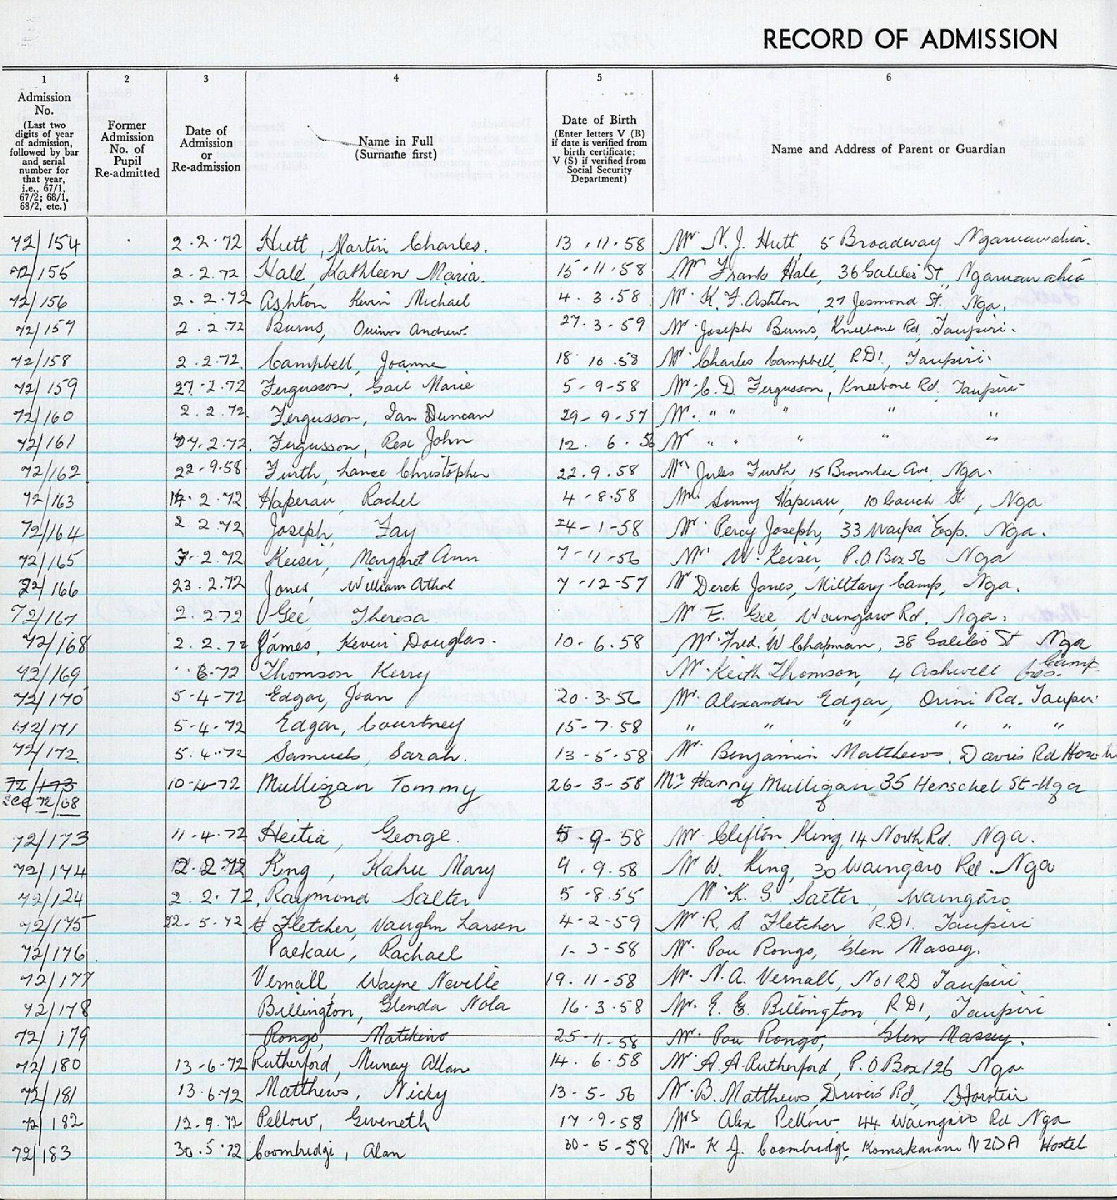 RECORD OF ADMISSION
1 2 3 4 5 6
Admission No. (Last two digits of year of admission, followed by bar and serial number for that year, i.e., 67/1, 67/2; 68/1, 68/2, etc.)
Former Admission No. of Pupil Re-admitted
Date of Admission or Re-admission
Name in Full (Surname first)
Date of Birth (Enter letters V (B) if date is verified from birth certificate; V (S) if verified from Social Security Department)
Name and Address of Parent or Guardian
72/154 2.2.72 Hutt, Martin Charles. 13.11.58 Mr N.J. Hutt 5 Broadway Ngaruawahia.
72/155 2.2.72 Hale, Kathleen Maria. 15.11.58 Mr Frank Hale, 36 Galileo St, Ngaruawahia
72/156 2.2.72 Ashton Kevin Michael 4.3.58 Mr K F Ashton, 27 Jesmond St. Nga.
72/157 2.2.72 Burns, Andrew. 27.3.59 Mr Joseph Burns, Kneebone Rd, Taupiri.
72/158 2.2.72. Campbell, Joanne 18 10.58 Mr Charles Campbell, RD1, Taupiri.
72/159 27-2-72 Fergusson, Gael Marie 5-9-58 Mr C.D Fergusson, Kneebone Rd, Taupiri
72/160 2.2.72. Fergusson, Ian Duncan 29-9-57 Mr. " " " " "
72/161 2.72. Fergusson, Rex John 12.6.56 Mr " " " " "
72/162 22-9.58 Furth, Lance Christopher 22.9.58 Mrs Jules Furth, 15 Brownlee Ave. Nga.
72/163 2.72 Haperau, Rachel 4-8.58 Sonny Haperau, 10 St, Nga
72/164 2 2.72 Joseph, Fay 24-1-58 Mr Percy Joseph, 33 Waipa Esp. Nga.
72/165 7-2.72 Keiser, Margaret Ann 7-11-56 Mr W. Keiser, P.O Box 56 Nga
72/166 23.2.72 Jones, William Athol 7-12-57 Mr Derek Jones, Military Camp, Nga.
72/167 2.2.72 Gee Theresa Mr E. Gee Waingaro Rd. Nga.
72/168 2.2.72 James, Kevin Douglas. 10.6.58 Mr Fred. W Chapman, 38 Galileo St Nga
72/169 72 Thomson, Kerry Mr Keith Thomson, 4 Ashwell Camp
72/170 5-4-72 Edgar, Joan 20.3-56 Mr Alexander Edgar, Orini Rd. Taupiri
72/171 5-4-72 Edgar, Courtney 15-7-58 " " " " " "
72/172 5.4.72 Samuels, Sarah. 13-5-58 Mr Benjamin Matthews, Davies Rd
72/173 10-4-72 Mulligan Tommy 26-3-58 Mr Harry Mulligan 35 Herschel St-Nga
see 72/68
72/173 11-4.72 Heitia, George. 5-9-58 Mr Clifton King, 14 North Rd. Nga.
72/174 12.2.72 King, Kahu Mary 9.9.58 Mr W. King, 30 Waingaro Rd. Nga
72/124 2.2.72, Raymond Salter 5-8.55 Mr K. G Salter, Waingaro
72/175 22-5.72 Fletcher, Vaughn Larsen 4-2-59 Mr R.S Fletcher, R.D1. Taupiri
72/176 Paekau, Rachael 1-3-58 Mr Pou Rongo, Glen Massey.
72/177 Vernall Wayne Neville 19.11-58 Mr N.A. Vernall, No1 RD Taupiri
72/178 Billington, Glenda Nola 16.3.58 Mr E. E. Billington, RD1, Taupiri
72/179 Rongo, 25-11-58 Mr Pou Rongo, Glen Massey.
72/180 13-6-72 Rutherford, Murray Alan 14.6.58 Mr A A Rutherford, P.O Box 126 Nga
72/181 13.6.72 Matthews, Nicky 13-5-56 Mr B. Matthews, Rd, Horotiu
72/182 12-9.72 Pellow, Gwyneth 17-9-58 Mrs Alex Pellow, 44 Waingaro Rd Nga
72/183 30.5.72 Coombridge, Alan 30-5-58 Mr K J. Coombridge, NZDA Hostel